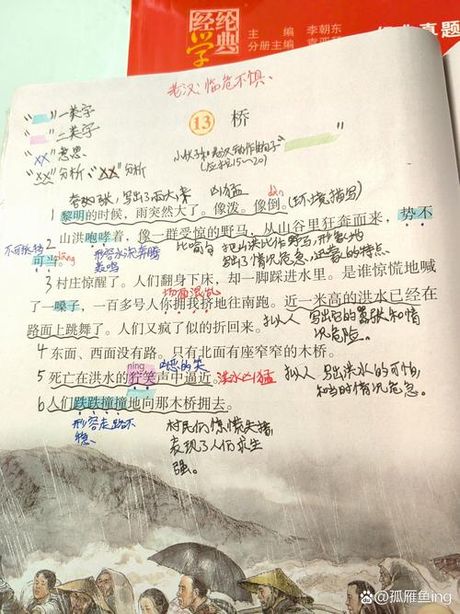 经纶学典
主 编 李朝东
分册主编
真题
老汉：临危不惧、
“ ”一类字
“ ”二类字
“XX”意思
“XX”分析“XX”分析
13 桥
小伙子和老汉动作的句子“ ”
夸张，写出了雨大
凶猛
(环境描写)
1 黎明的时候，雨突然大了。像泼。像倒。
2 山洪咆哮着，像一群受惊的野马，从山谷里狂奔而来，势不
可当。
dāng
不可抵挡
形容水流奔腾
轰鸣
比喻句 把山洪比作野马，形象地
写出了情况危急、迅猛的特点
3 村庄惊醒了。人们翻身下床，却一脚踩进水里。是谁惊慌地喊
了一嗓子，一百多号人你拥我挤地往南跑。近一米高的洪水已经在
路面上跳舞了。人们又疯了似的折回来。
场面混乱
拟人 写出洪水的嚣张和情
况危险。
4 东面、西面没有路。只有北面有座窄窄的木桥。
níng
凶恶的笑
5 死亡在洪水的狞笑声中逼近。
洪水凶猛
拟人 写出洪水的可怕，
和当时情况危急。
6 人们跌跌撞撞地向那木桥拥去。
形容走路不
稳。
村民们惊慌失措
表现了人们求生
强。
@孤雁鱼ing